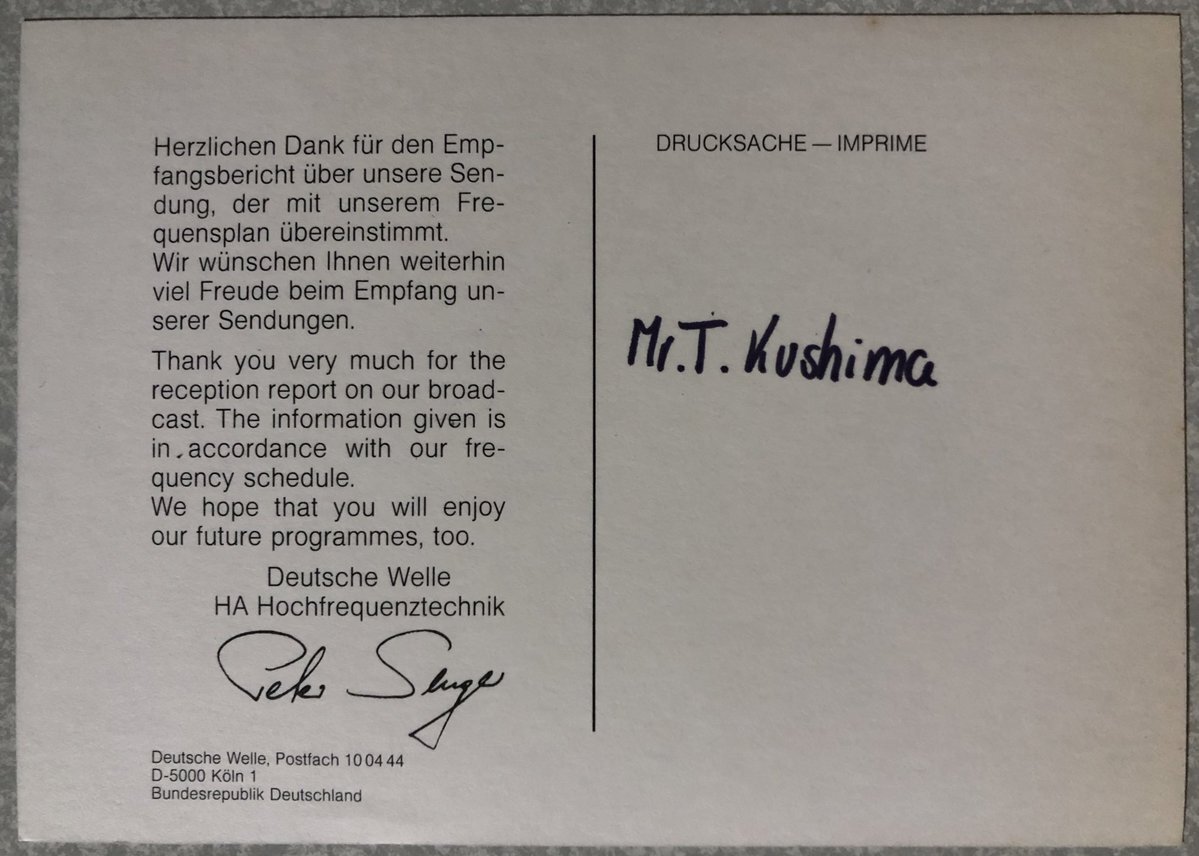 Herzlichen Dank für den Emp-
fangsbericht über unsere Sen-
dung, der mit unserem Fre-
quensplan übereinstimmt.
Wir wünschen Ihnen weiterhin
viel Freude beim Empfang un-
serer Sendungen.
Thank you very much for the
reception report on our broad-
cast. The information given is
in accordance with our fre-
quency schedule.
We hope that you will enjoy
our future programmes, too.
Deutsche Welle
HA Hochfrequenztechnik
Peter Senger
Deutsche Welle, Postfach 10 04 44
D-5000 Köln 1
Bundesrepublik Deutschland
DRUCKSACHE — IMPRIME
Mr. T. Kushima